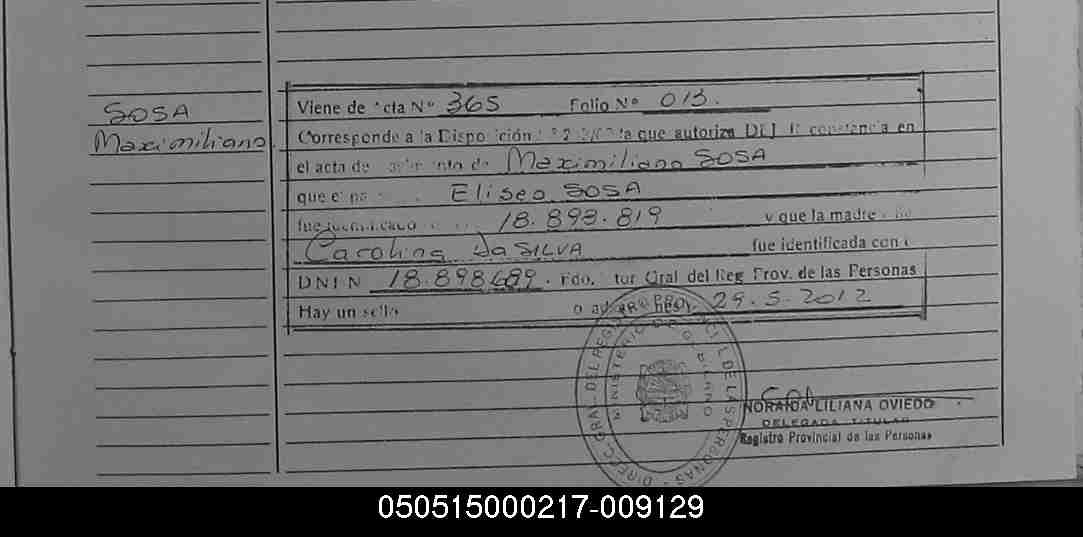 SOSA
Maximiliano
Viene de Acta Nº 365 Folio Nº 013.
Corresponde a la Disposición la que autoriza DEJ constancia en
el acta de de Maximiliano SOSA
que el Eliseo SOSA
fue 18.893.819 y que la madre
Carolina Da SILVA fue identificada con
DNI N 18.898.689. Fdo. Gral del Reg Prov. de las Personas
Hay un sello 29.5.2012
DIREC. GRAL. DEL REGISTRO PROVINCIAL DE LAS PERSONAS
MINISTERIO DE GOBIERNO
NORAIDA LILIANA OVIEDO
DELEGADA TITULAR
Registro Provincial de las Personas
050515000217-009129